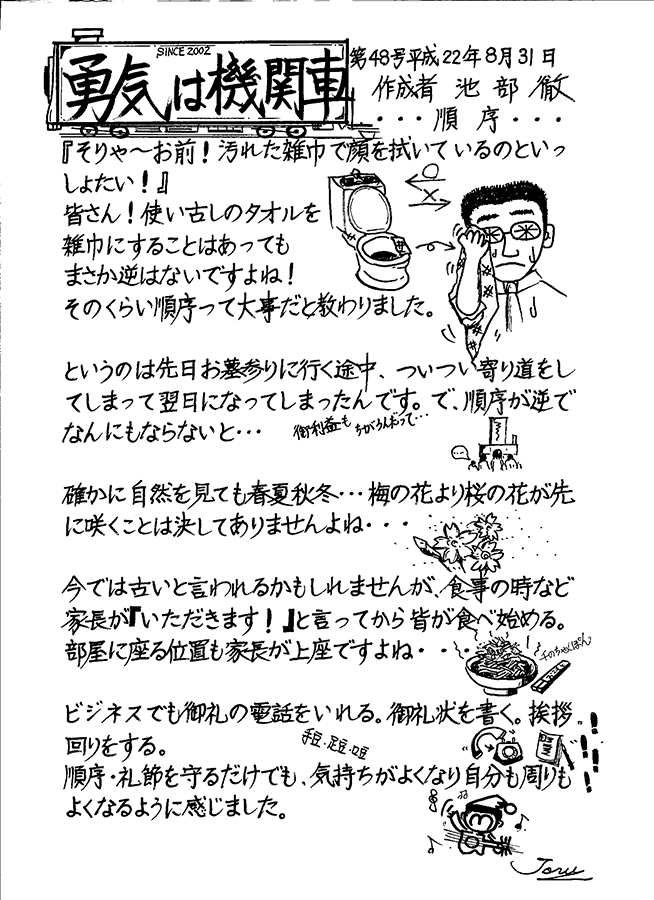 SINCE 2002
勇気は機関車
第48号平成22年8月31日
作成者 池部徹
・・・順序・・・
『そりゃ～お前！汚れた雑巾で顔を拭いているのといっ
しょたい！』
皆さん！使い古しのタオルを
雑巾にすることはあっても
まさか逆はないですよね！
そのくらい順序って大事だと教わりました。
というのは先日お墓参りに行く途中、ついつい寄り道をし
てしまって翌日になってしまったんです。で、順序が逆で
なんにもならないと・・・
御利益もちがうんだって・・・
確かに自然を見ても春夏秋冬・・・梅の花より桜の花が先
に咲くことは決してありませんよね・・・
今では古いと言われるかもしれませんが、食事の時など
家長が『いただきます！』と言ってから皆が食べ始める。
部屋に座る位置も家長が上座ですよね・・・
ビジネスでも御礼の電話をいれる。御礼状を書く。挨拶
回りをする。
順序・礼節を守るだけでも、気持ちがよくなり自分も周りも
よくなるように感じました。
Toru